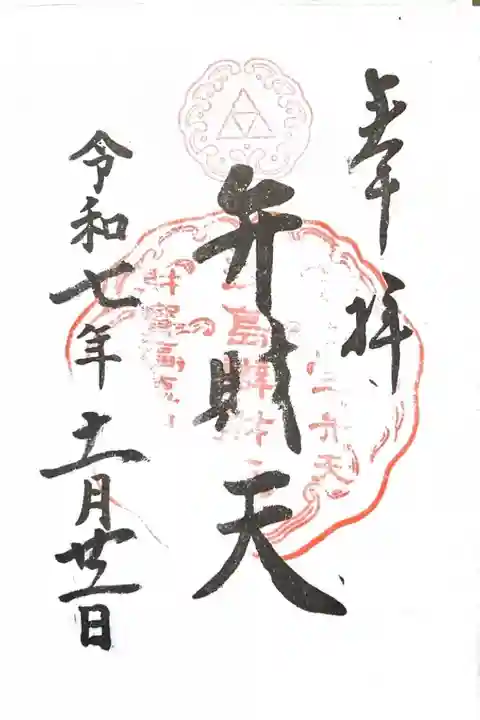 奉拝
弁財天
令和七年十一月廿一日
弁天
島辨財